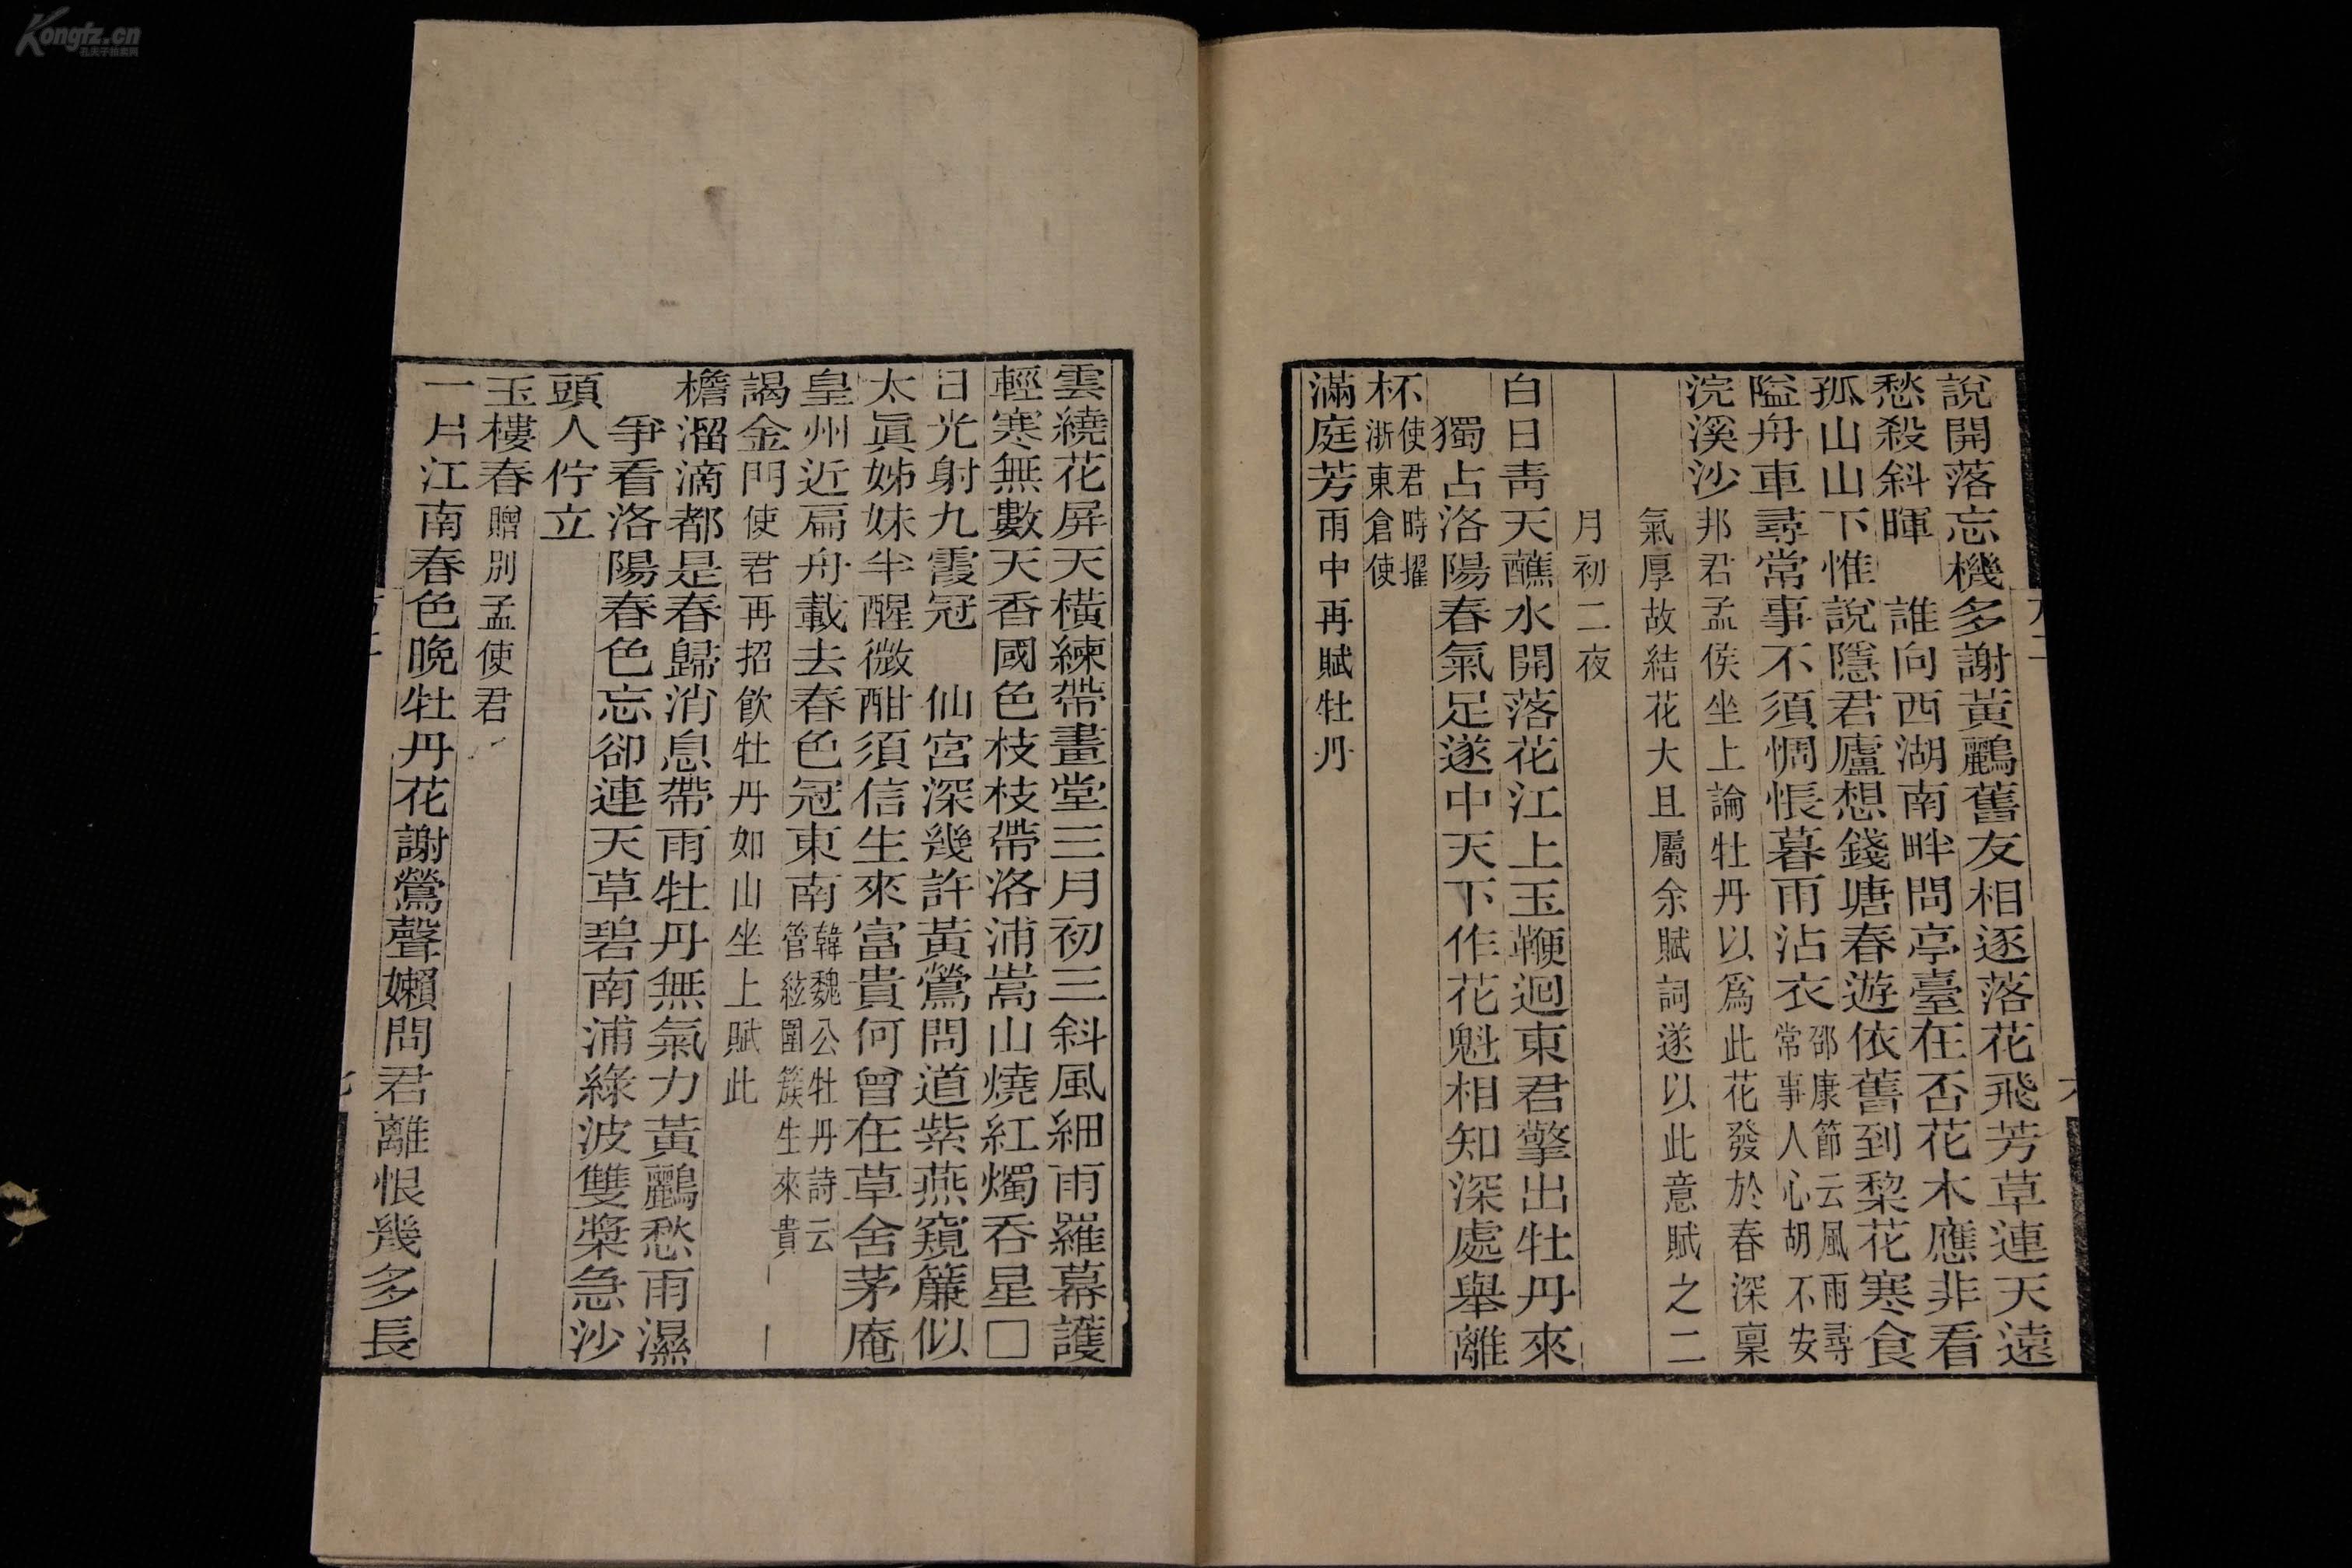 說開落忘機多謝黃鸝舊友相逐落花飛芳草連天遠
愁殺斜暉　誰向西湖南畔問亭臺在否花木應非看
孤山山下惟說隱君廬想錢塘春遊依舊到棃花寒食
隘舟車尋常事不須惆悵暮雨沾衣邵康節云風雨尋常事人心胡不安
浣溪沙邦君孟侯坐上論牡丹以爲此花發於春深稟
氣厚故結花大且屬余賦詞遂以此意賦之二
月初二夜
白日靑天蘸水開落花江上玉鞭迴東君擎出牡丹來
獨占洛陽春氣足遂中天下作花魁相知深處舉離
杯使君時擢浙東倉使
滿庭芳雨中再賦牡丹
雲繞花屏天橫練帶畫堂三月初三斜風細雨羅幕護
輕寒無數天香國色枝枝帶洛浦嵩山燒紅燭吞星□
日光射九霞冠　仙宮深幾許黃鶯問道紫燕窺簾似
太眞姊妹半醒微酣須信生來富貴何曾在草舍茅庵
皇州近扁舟載去春色冠東南韓魏公牡丹詩云管絃圍簇生來貴
謁金門使君再招飮牡丹如山坐上賦此
檐溜滴都是春歸消息帶雨牡丹無氣力黃鸝愁雨濕
爭看洛陽春色忘卻連天草碧南浦綠波雙槳急沙
頭人佇立
玉樓春贈別孟使君
一片江南春色晚牡丹花謝鶯聲嬾問君離恨幾多長
Kongfz.cn